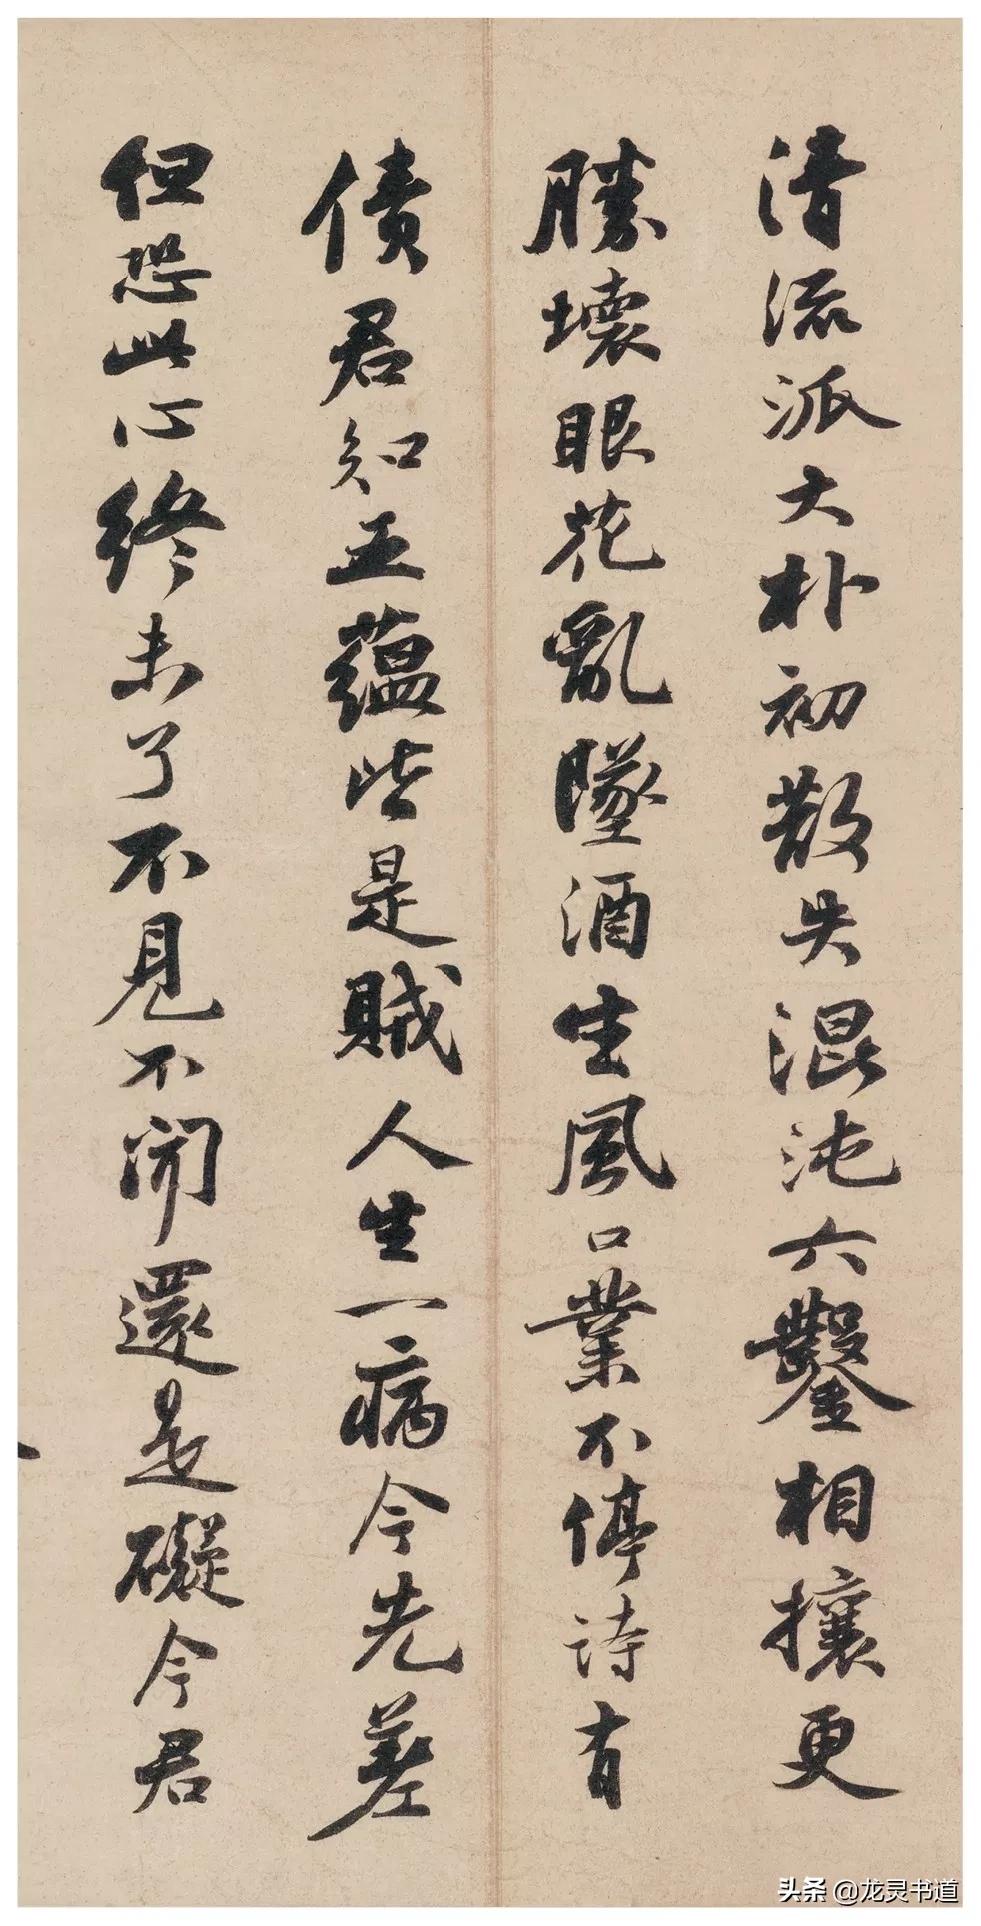 淯流派大朴初散失混沌六鑿相攘更
勝壞眼花亂墜酒生風口業不停詩有
債君知五蘊些是賊人生一病今先差
但恐此心終未了不見不聞還是礙今君
头条 @龙灵书道